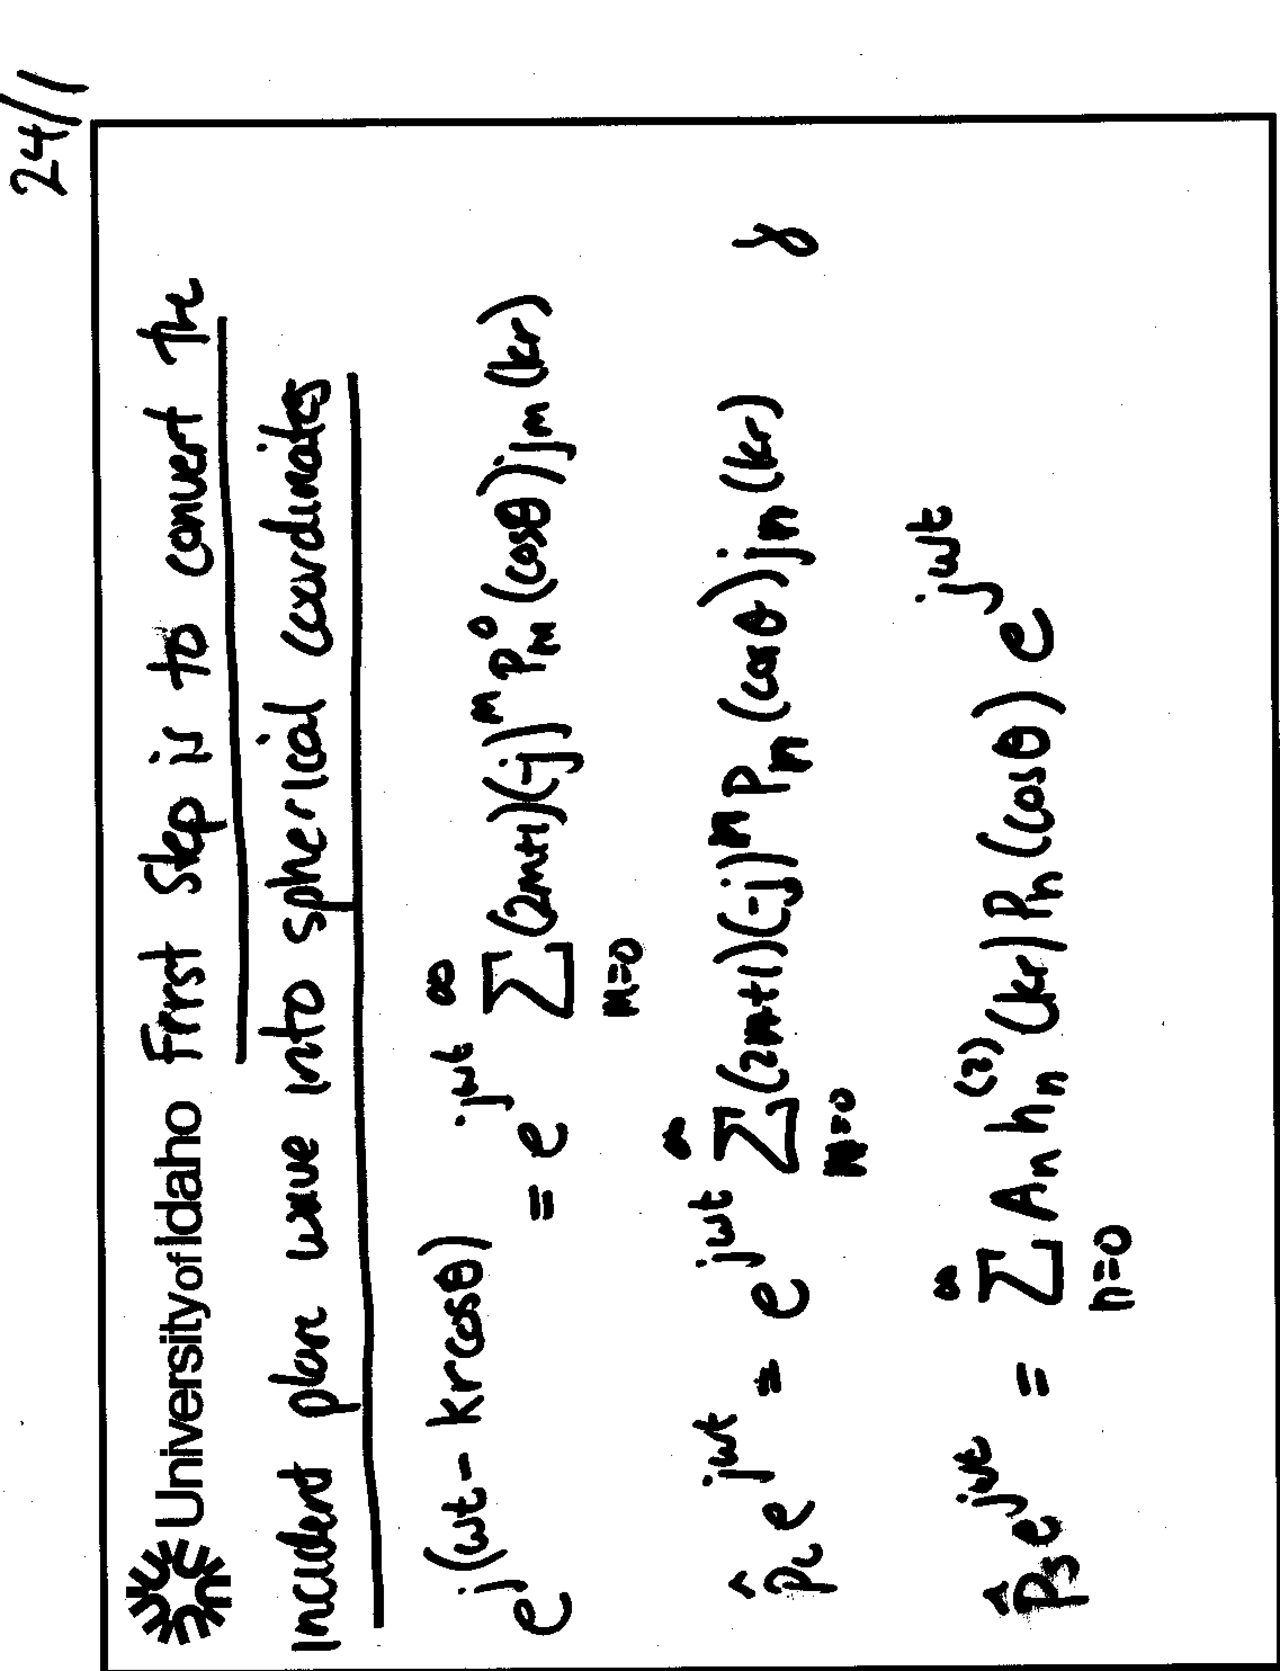 24/1
University of Idaho First Step is to convert the
incident plane wave into spherical coordinates
e^{j(ωt - krcosθ)} = e^{jωt} \sum_{m=0}^{∞} (2m+1)(-j)^m P_m^0 (cosθ) j_m (kr)
\hat{p}_i e^{jωt} = e^{jωt} \sum_{m=0}^{∞} (2m+1)(-j)^m P_m (cosθ) j_m (kr) &
\hat{p}_s e^{jωt} = \sum_{n=0}^{∞} A_n h_n^{(2)} (kr) P_n (cosθ) e^{jωt}